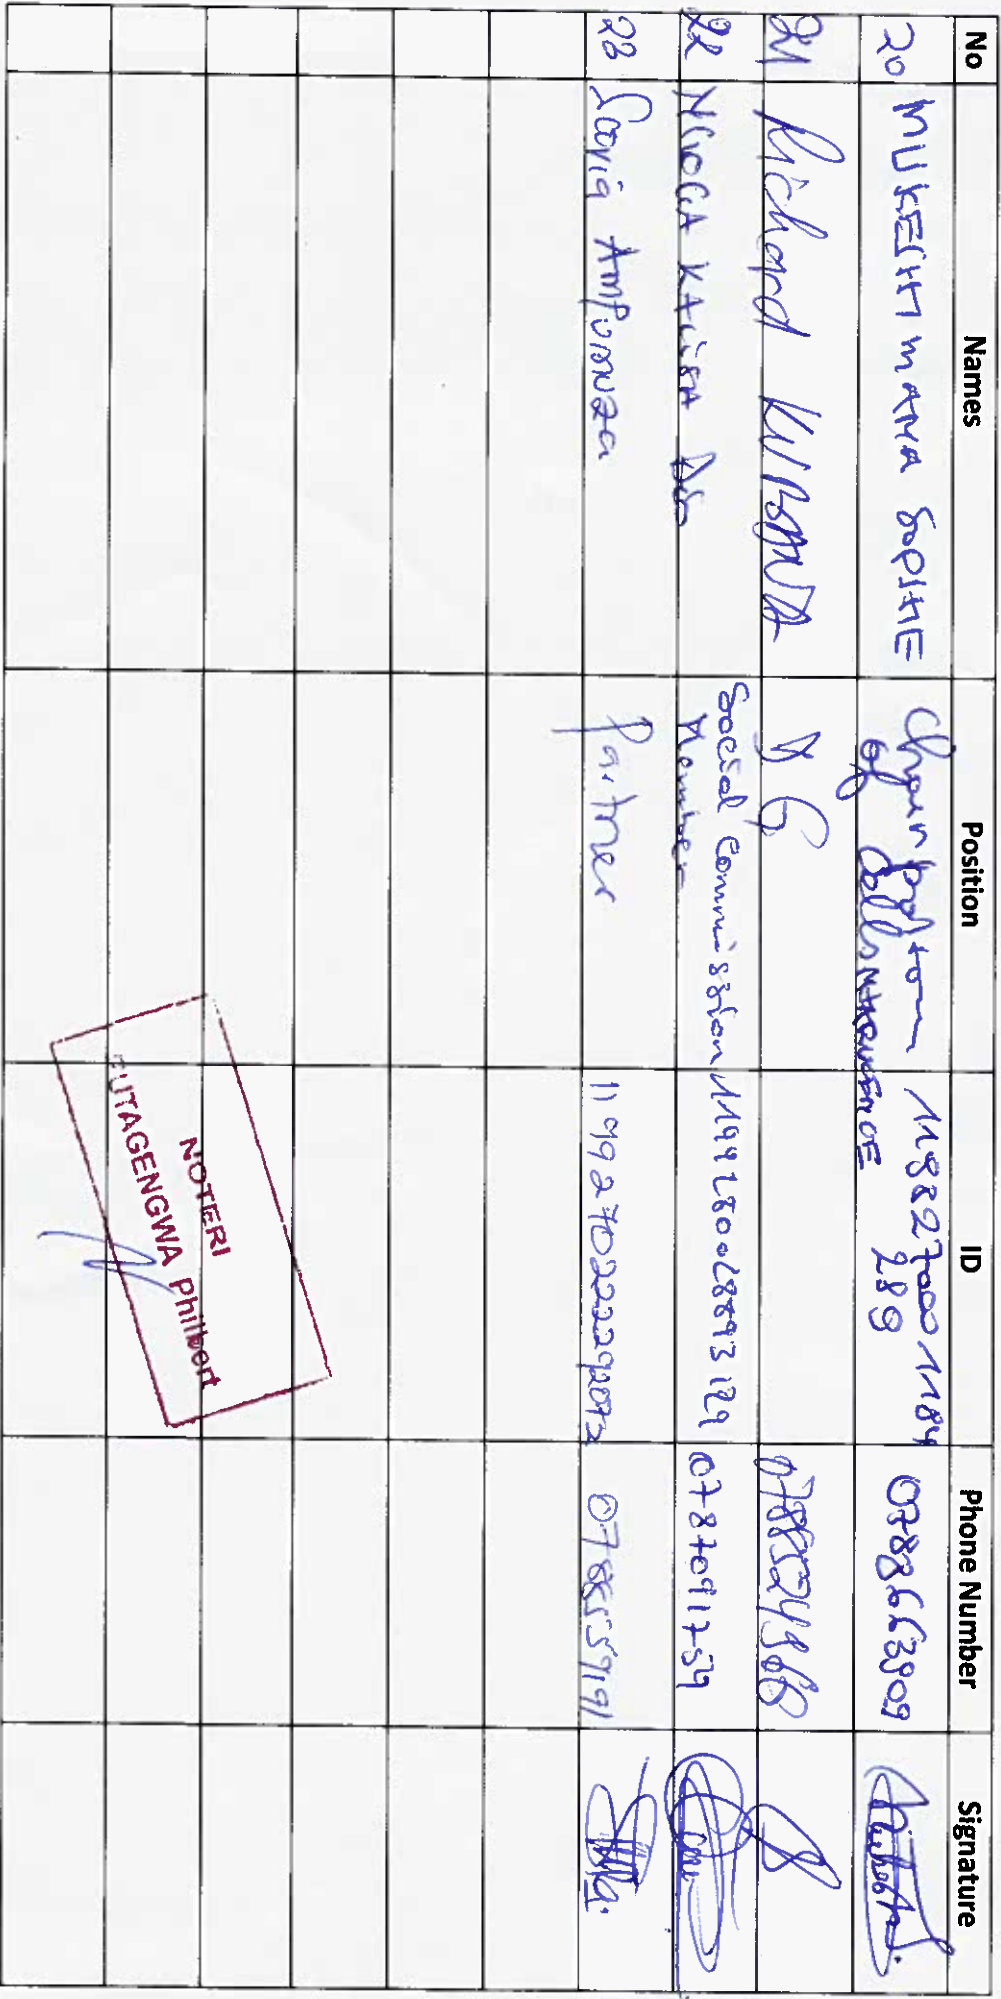 No Names Position ID Phone Number Signature
20 MUKESHIMANA SOPHIE Chairperson 1198827000 1184
of 289 0788663909
21 Richard KUBANA DG 0788524960
22 NGOGA KALISA Social Commission 1199280028893129 0787091754
Member
23 Scovia Ampurunza Partner 1199270222292072 0788559191
NOTERI
RUTAGENGWA Philbert